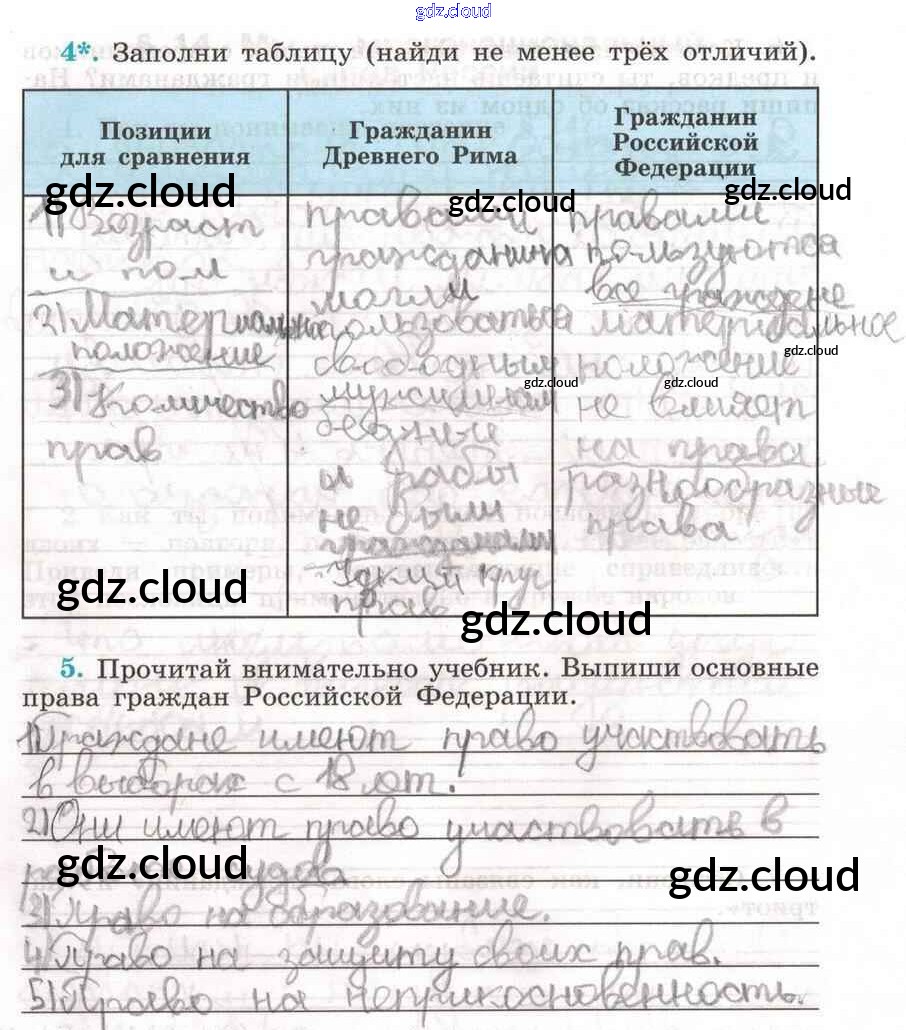 gdz.cloud
4*. Заполни таблицу (найди не менее трёх отличий).
Позиции
для сравнения
Гражданин
Древнего Рима
Гражданин
Российской
Федерации
gdz.cloud
gdz.cloud
gdz.cloud
1) Возраст
и пол
2) Материальное
положение
3) Количество
прав
правами
гражданина
могли
пользоваться
свободным
мужчинам
бедные
и рабы
не были
гражданами
Узкий круг
прав
правами
пользуются
все граждане
материальное
положение
не влияет
на права
разнообразные
права
gdz.cloud
gdz.cloud
gdz.cloud
gdz.cloud
gdz.cloud
5. Прочитай внимательно учебник. Выпиши основные
права граждан Российской Федерации.
1) Граждане имеют право участвовать
в выборах с 18 лет.
2) Они имеют право участвовать в
суда
gdz.cloud
gdz.cloud
3) Право на образование.
4) Право на защиту своих прав.
5) Право на неприкосновенность.